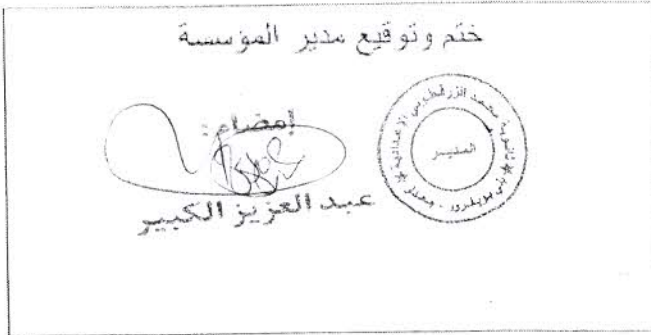 ختم وتوقيع مدير المؤسسة
إمضاء:
عبد العزيز الكبير
ثانوية محمد الزرقطوني الإعدادية
المدير